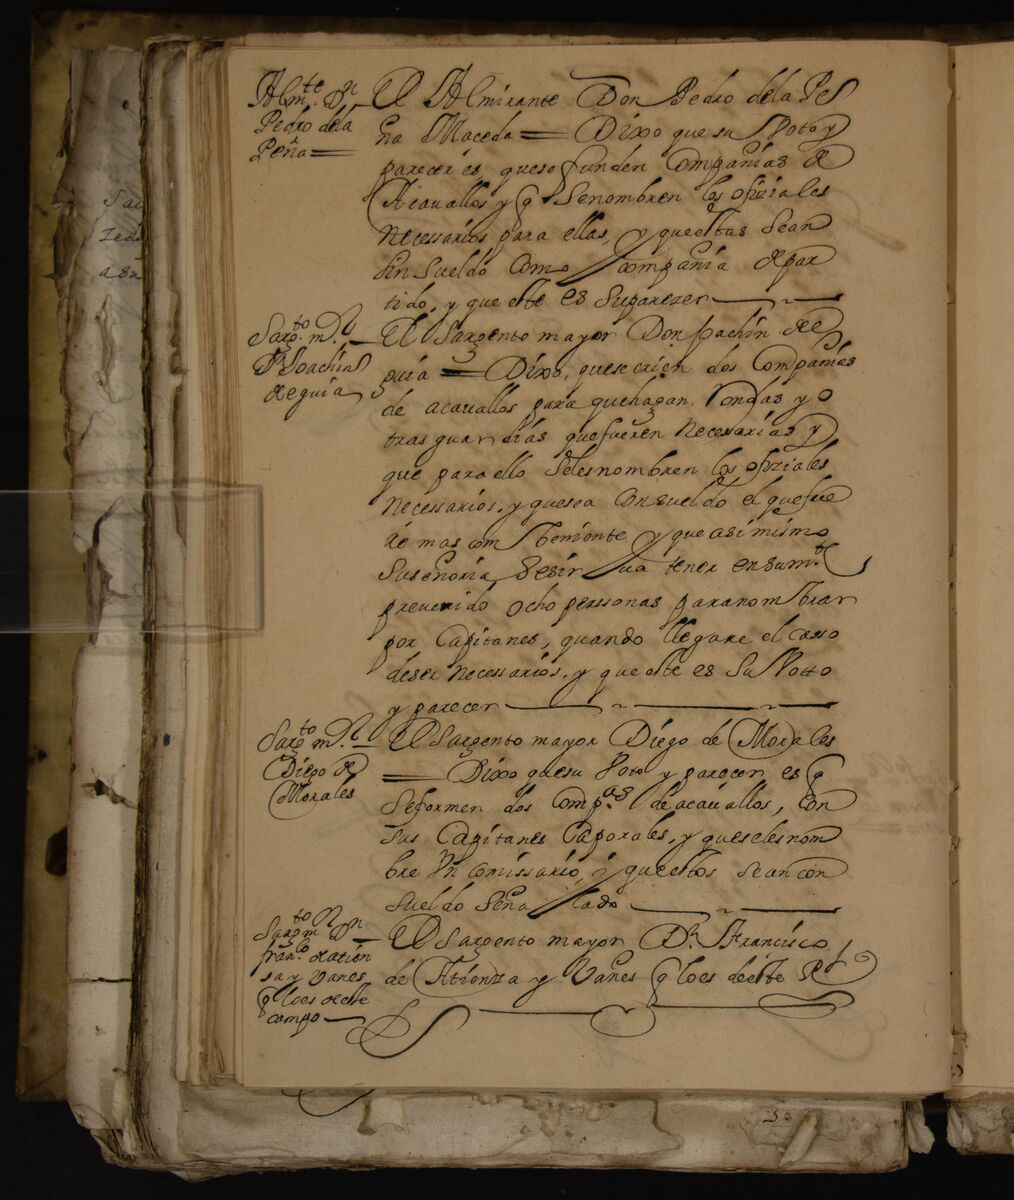 Almte. Dn
Pedro dela
Peña
El Almirante Don Pedro dela Pe
ña Maceda Dixo que su Voto y
parecer es, quese funden Compañias de
Acauallos y q Senombren los ofiziales
Necessarios para ellas, y questas Sean
sin Sueldo Como compañia de par
tido, y que este es Suparezer
Sargto. mr
Dn Joachin
de eguia
El Sargento mayor Don Joachin de e
guia Dixo, quese crien dos Compañias
de acauallos para quehagan Rondas y o
tras guardias quefueren Necessarias y
que para ello Selesnombren los ofiziales
Necessarios, y quesea Con sueldo el quefue
re mas com beniente y que asimismo
Suseñoria Se sirua tener ensumte.
preuenido ocho perssonas paranombrar
por Capitanes, quando llegare el casso
deser Necessarios, y que este es Su Votto
y parecer
Sargto mr
Diego de
Morales
El Sargento mayor Diego de Morales
Dixo quesu Voto y parecer es q
Seformen dos Compas. de acauallos, con
Sus Capitanes Caporales, y queselesnom
bre Vn Comissario, y questos Sean con
Sueldo Seña lado
Sargto mr Dn
franco. de atien
sa y Vanes
q lo es deeste
campo
El Sargento mayor Dn Francisco
de Atienza y Vanes q lo es deeste Rl